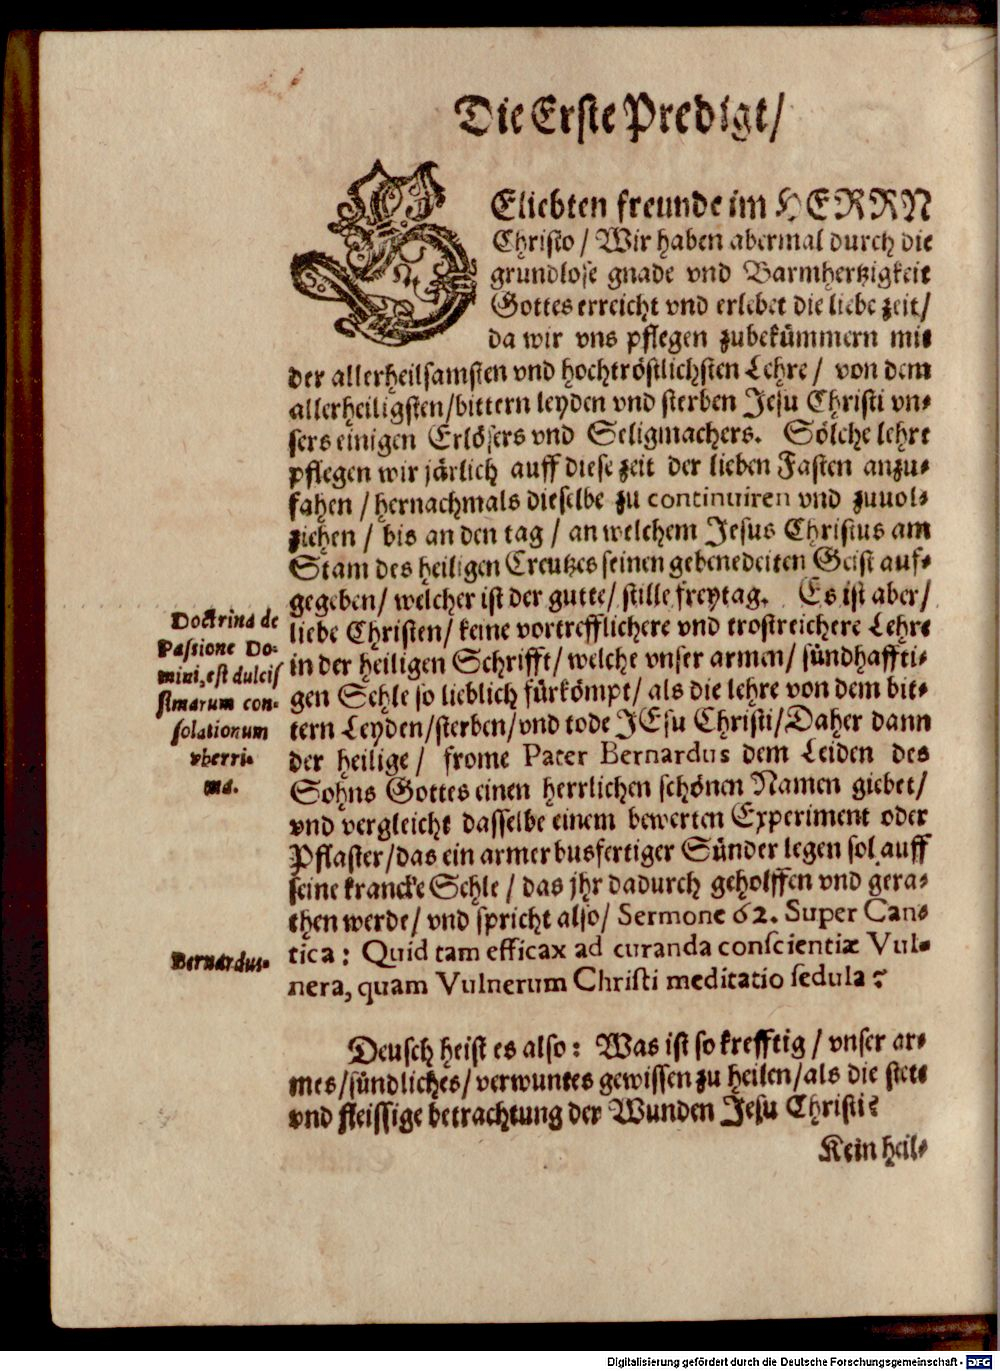 Die Erste Predigt/
GEliebten freunde im HERRN
Christo / Wir haben abermal durch die
grundlose gnade vnd Barmhertzigkeit
Gottes erreicht vnd erlebet die liebe zeit/
da wir vns pflegen zubekümmern mit
der allerheilsamsten vnd hochtröstlichsten Lehre / von dem
allerheiligsten/bittern leyden vnd sterben Jesu Christi vn-
sers einigen Erlösers vnd Seligmachers. Sölche lehre
pflegen wir järlich auff diese zeit der lieben Fasten anzu-
fahen / hernachmals dieselbe zu continuiren vnd zuuol-
ziehen / bis an den tag / an welchem Jesus Christus am
Stam des heiligen Creutzes seinen gebenedeiten Geist auf-
gegeben/ welcher ist der gutte/ stille freytag. Es ist aber/
liebe Christen/ keine vortrefflichere vnd trostreichere Lehre
in der heiligen Schrifft/ welche vnser armen/ sündhaffti-
gen Sehle so lieblich fürkömpt/ als die lehre von dem bit-
tern Leyden/sterben/vnd tode JEsu Christi/Daher dann
der heilige/ frome Pater Bernardus dem Leiden des
Sohns Gottes einen herrlichen schönen Namen giebet/
vnd vergleicht dasselbe einem bewerten Experiment oder
Pflaster/das ein armer busfertiger Sünder legen sol auff
seine krancke Sehle / das jhr dadurch geholffen vnd gera-
then werde/ vnd spricht also/ Sermone 62. Super Can-
tica: Quid tam efficax ad curanda conscientiæ Vul-
nera, quam Vulnerum Christi meditatio sedula?
Doctrina de
Passione Do-
mini, est dulcis
simarum con-
solationum
vberri-
ma.
Bernardus.
Deusch heist es also: Was ist so krefftig / vnser ar-
mes/sündliches/ verwuntes gewissen zu heilen/als die stete
vnd fleissige betrachtung der Wunden Jesu Christi?
Kein heil-
Digitalisierung gefördert durch die Deutsche Forschungsgemeinschaft - DFG